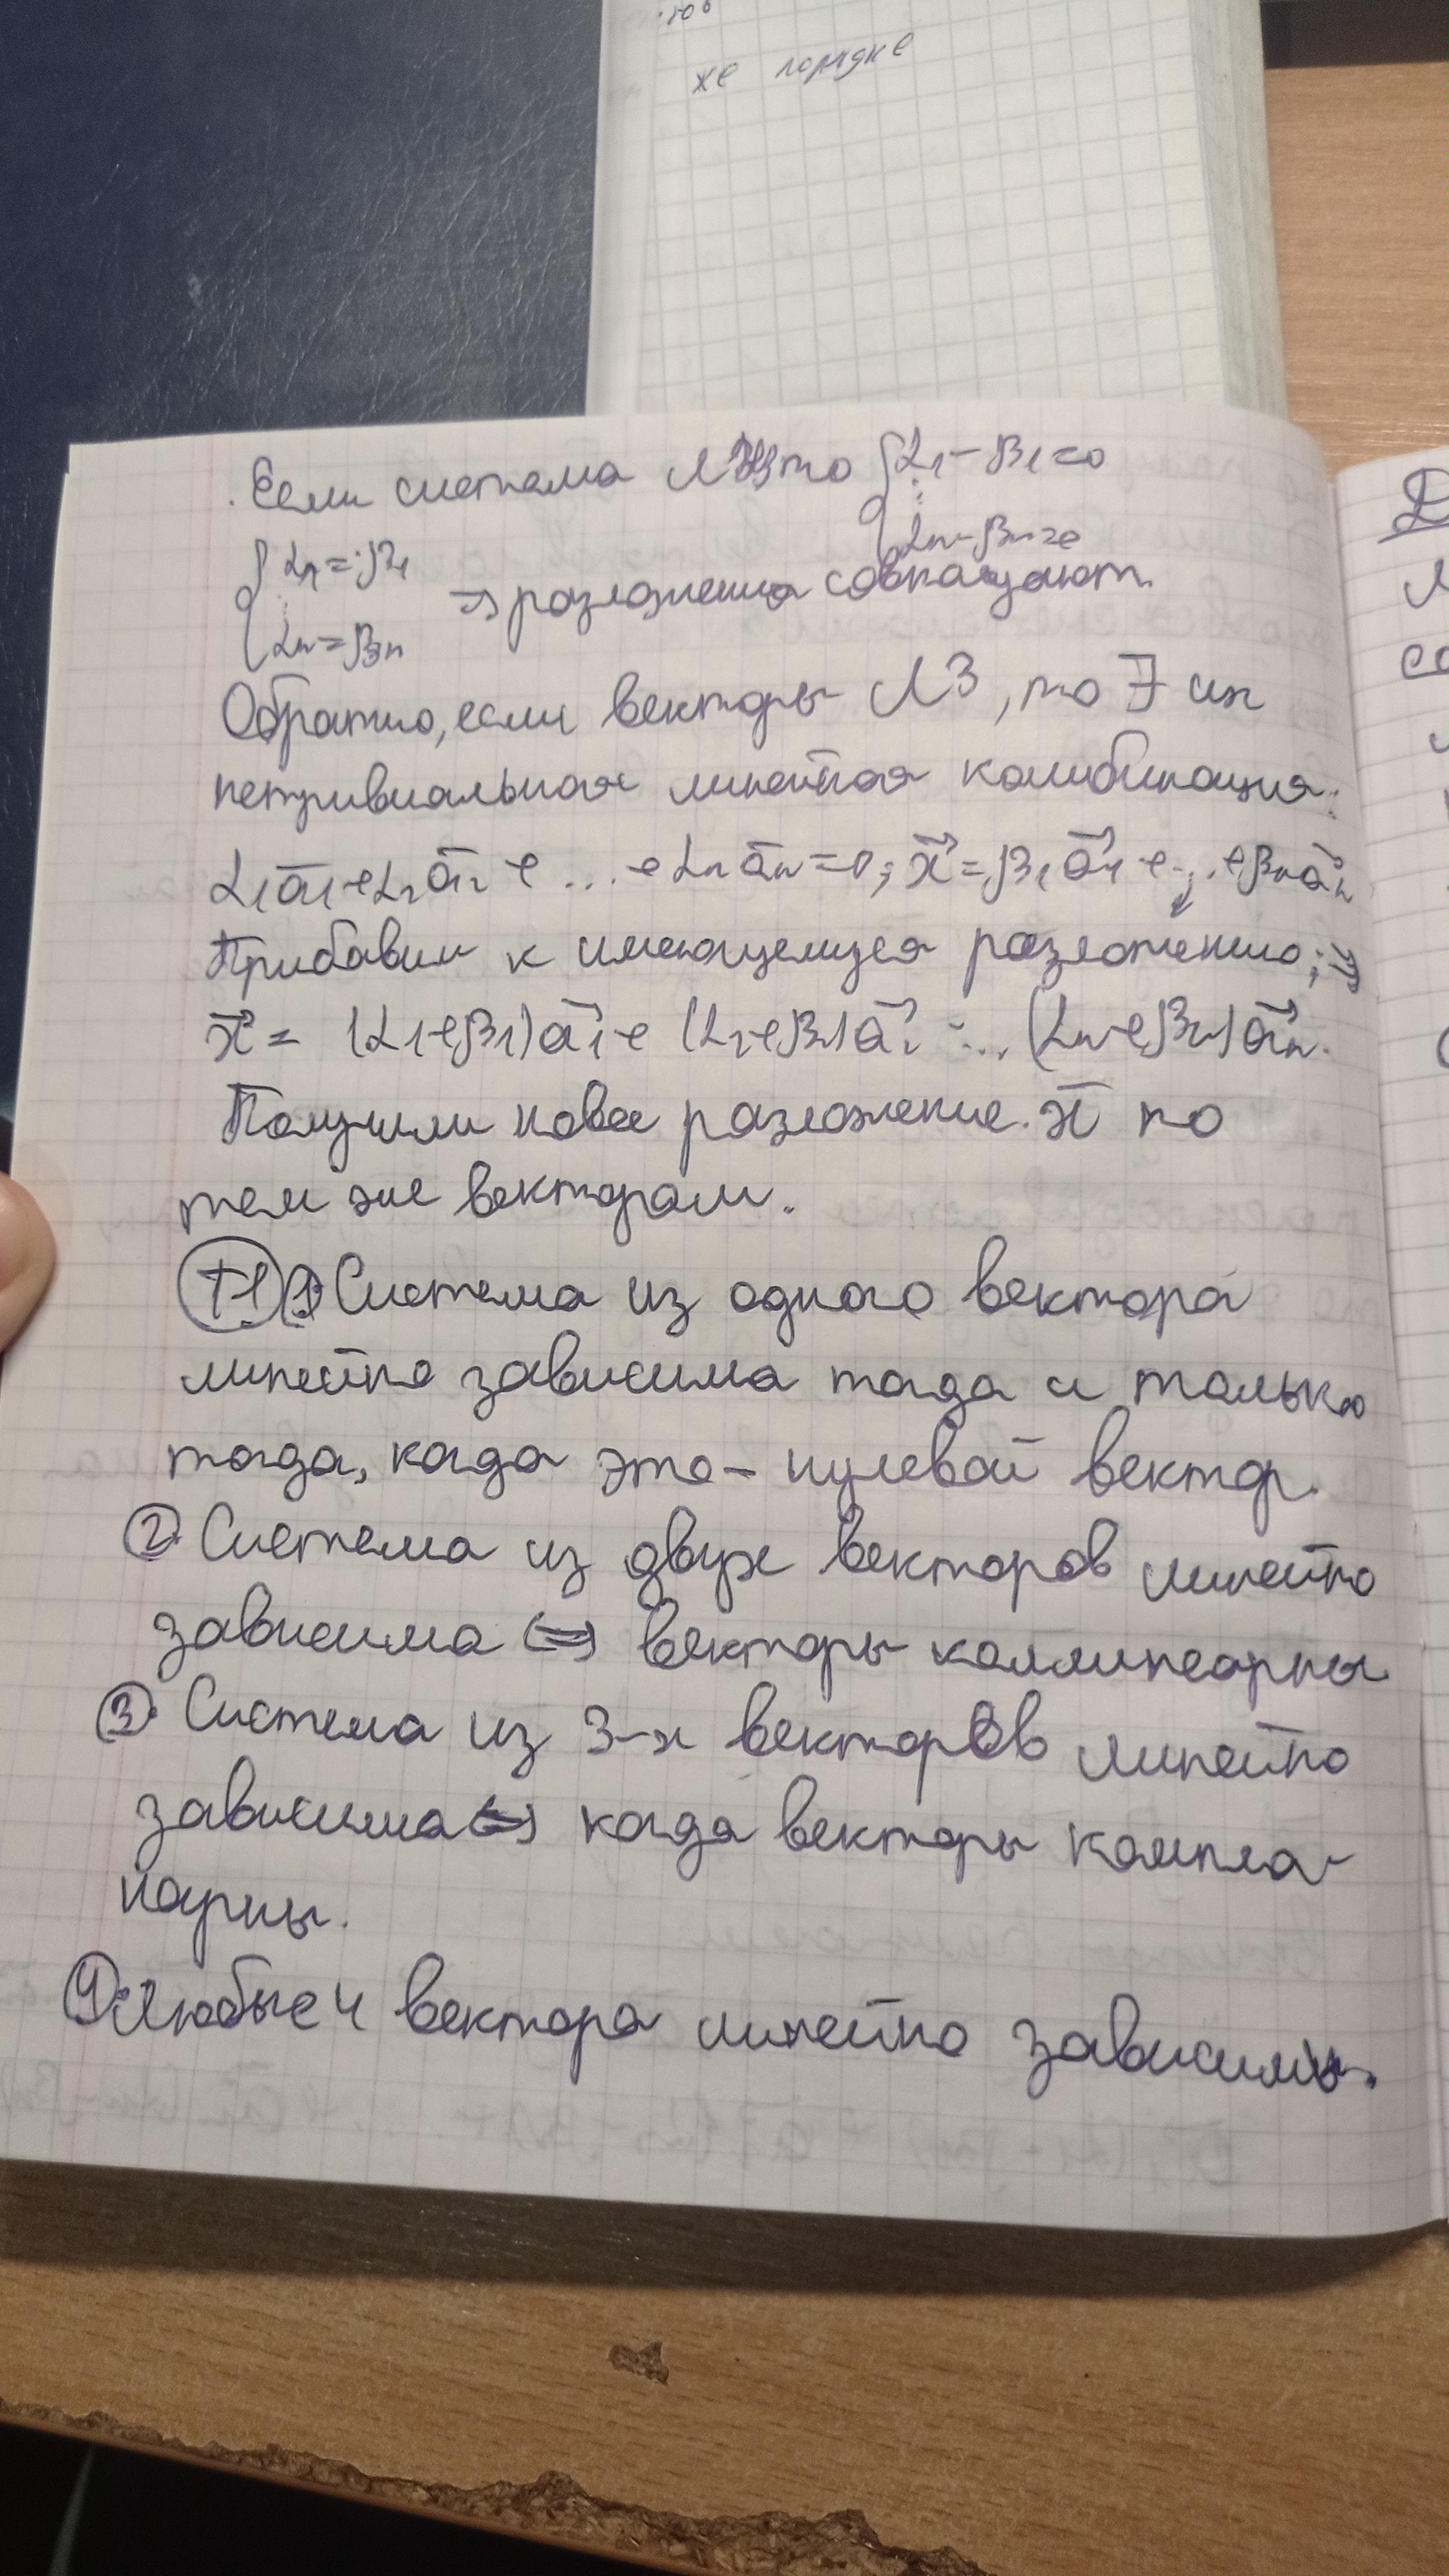 же порядке
Если система ЛНЗ то { α₁ - β₁ = 0
⋮
αn - βn = 0
{ α₁ = β₁
⋮
αn = βn
⇒ разложения совпадают.
Обратно, если векторы ЛЗ, то ∃ их
нетривиальная линейная комбинация:
α₁a₁ + α₂a₂ + ... + αnan = 0; x⃗ = β₁a⃗₁ + ... + βna⃗n
Прибавим к имеющемуся разложению; ⇒
x⃗ = (α₁+β₁)a⃗₁ + (α₂+β₂)a⃗₂ ... (αn+βn)a⃗n.
Получили новое разложение x⃗ по
тем же векторам.
Т1 1 Система из одного вектора
линейно зависима тогда и только
тогда, когда это - нулевой вектор.
2. Система из двух векторов линейно
зависима ⇔ векторы коллинеарны
3. Система из 3-х векторов линейно
зависима ⇔ когда векторы компла-
нарны.
4. Любые 4 вектора линейно зависимы.